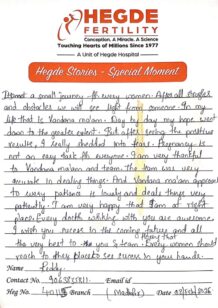 HEGDE
FERTILITY
Conception. A Miracle. A Science
Touching Hearts of Millions Since 1977
A Unit of Hegde Hospital
Hegde Stories - Special Moment
not a small journey for every women. After all struggles
and obstacles we will see light from someone. In my
life that is Vandana ma'am. Day by day my hope went
down to the greater extent. But after seeing the positive
results, I really shedded into tears. Pregnancy is
not an easy task for everyone. I am very thankful
to Vandana ma'am and team. The team was very
in doing things. And Vandana ma'am approach
to every patient is lovely and deals things very
patiently. I am very happy that I am at right
place. Every with you are awesome.
I wish you success in the coming future and all
the very best to the you & team. Every women should
reach to other places to see success in your hands.
Name Reddy
Contact No. Email id
Reg No. Branch (Madhapur) Date